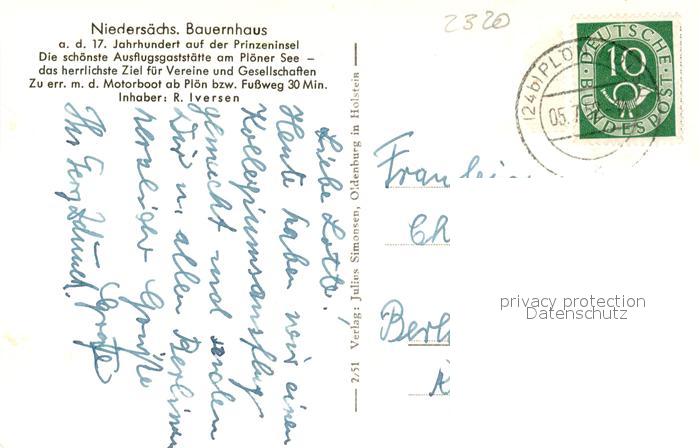 2320
Niedersächs. Bauernhaus
a. d. 17. Jahrhundert auf der Prinzeninsel
Die schönste Ausflugsgaststätte am Plöner See –
das herrlichste Ziel für Vereine und Gesellschaften
Zu err. m. d. Motorboot ab Plön bzw. Fußweg 30 Min.
Inhaber: R. Iversen
Liebe Lotte!
Heute haben wir einen
Kollegiumsausflug
gemacht und senden
Dir u. allen Berlinern
herzliche Grüße
Ihr
2/51 Verlag: Julius Simonsen, Oldenburg in Holstein
DEUTSCHE
BUNDESPOST
10
(24b) PLÖ
05.7
Ch
Berl
privacy protection
Datenschutz